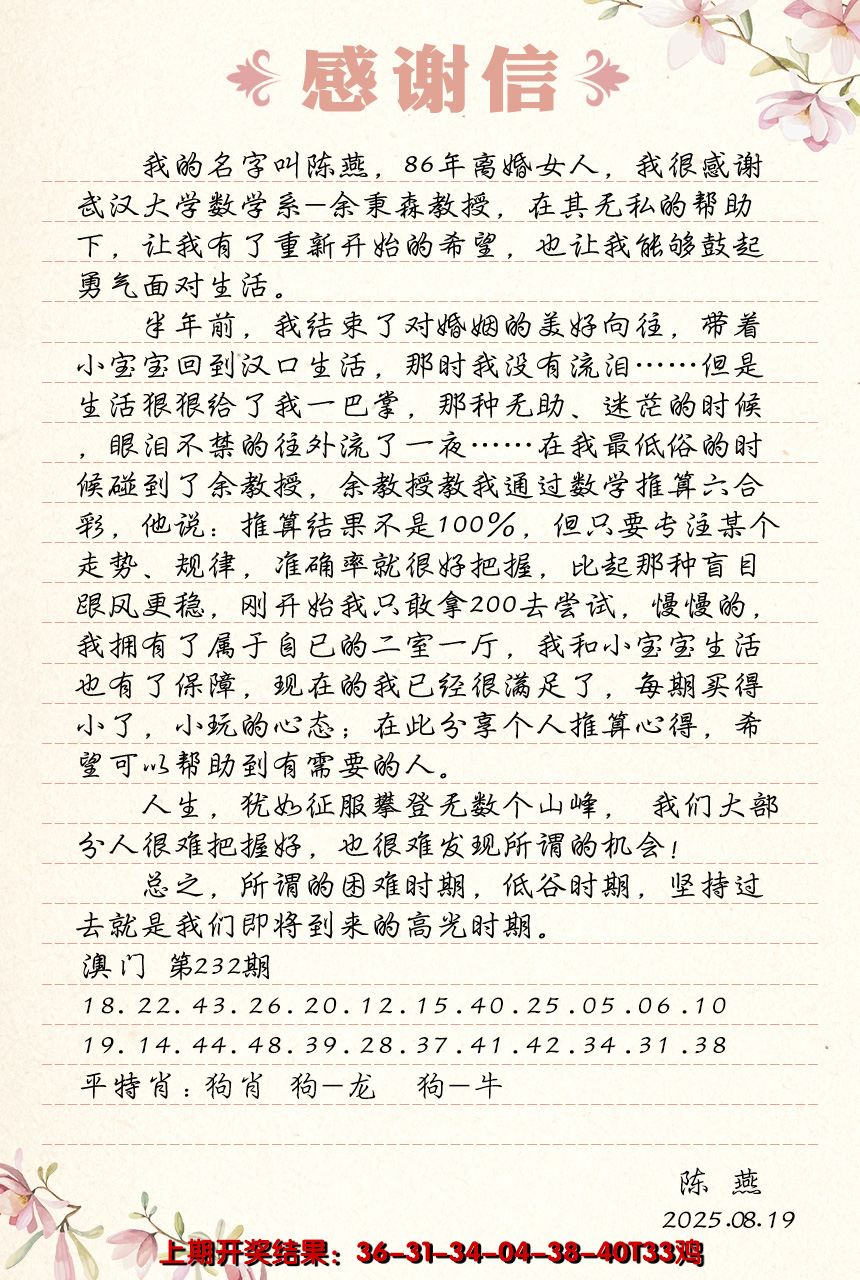 感谢信
我的名字叫陈燕，86年离婚女人，我很感谢
武汉大学数学系—余秉森教授，在其无私的帮助
下，让我有了重新开始的希望，也让我能够鼓起
勇气面对生活。
半年前，我结束了对婚姻的美好向往，带着
小宝宝回到汉口生活，那时我没有流泪……但是
生活狠狠给了我一巴掌，那种无助、迷茫的时候
，眼泪不禁的往外流了一夜……在我最低俗的时
候碰到了余教授，余教授教我通过数学推算六合
彩，他说：推算结果不是100%，但只要专注某个
走势、规律，准确率就很好把握，比起那种盲目
跟风更稳，刚开始我只敢拿200去尝试，慢慢的，
我拥有了属于自已的二室一厅，我和小宝宝生活
也有了保障，现在的我已经很满足了，每期买得
小了，小玩的心态；在此分享个人推算心得，希
望可以帮助到有需要的人。
人生，犹如征服攀登无数个山峰， 我们大部
分人很难把握好，也很难发现所谓的机会！
总之，所谓的困难时期，低谷时期，坚持过
去就是我们即将到来的高光时期。
澳门 第232期
18.22.43.26.20.12.15.40.25.05.06.10
19.14.44.48.39.28.37.41.42.34.31.38
平特肖：狗肖 狗—龙 狗—牛
陈 燕
2025.08.19
上期开奖结果：36-31-34-04-38-40T33鸡